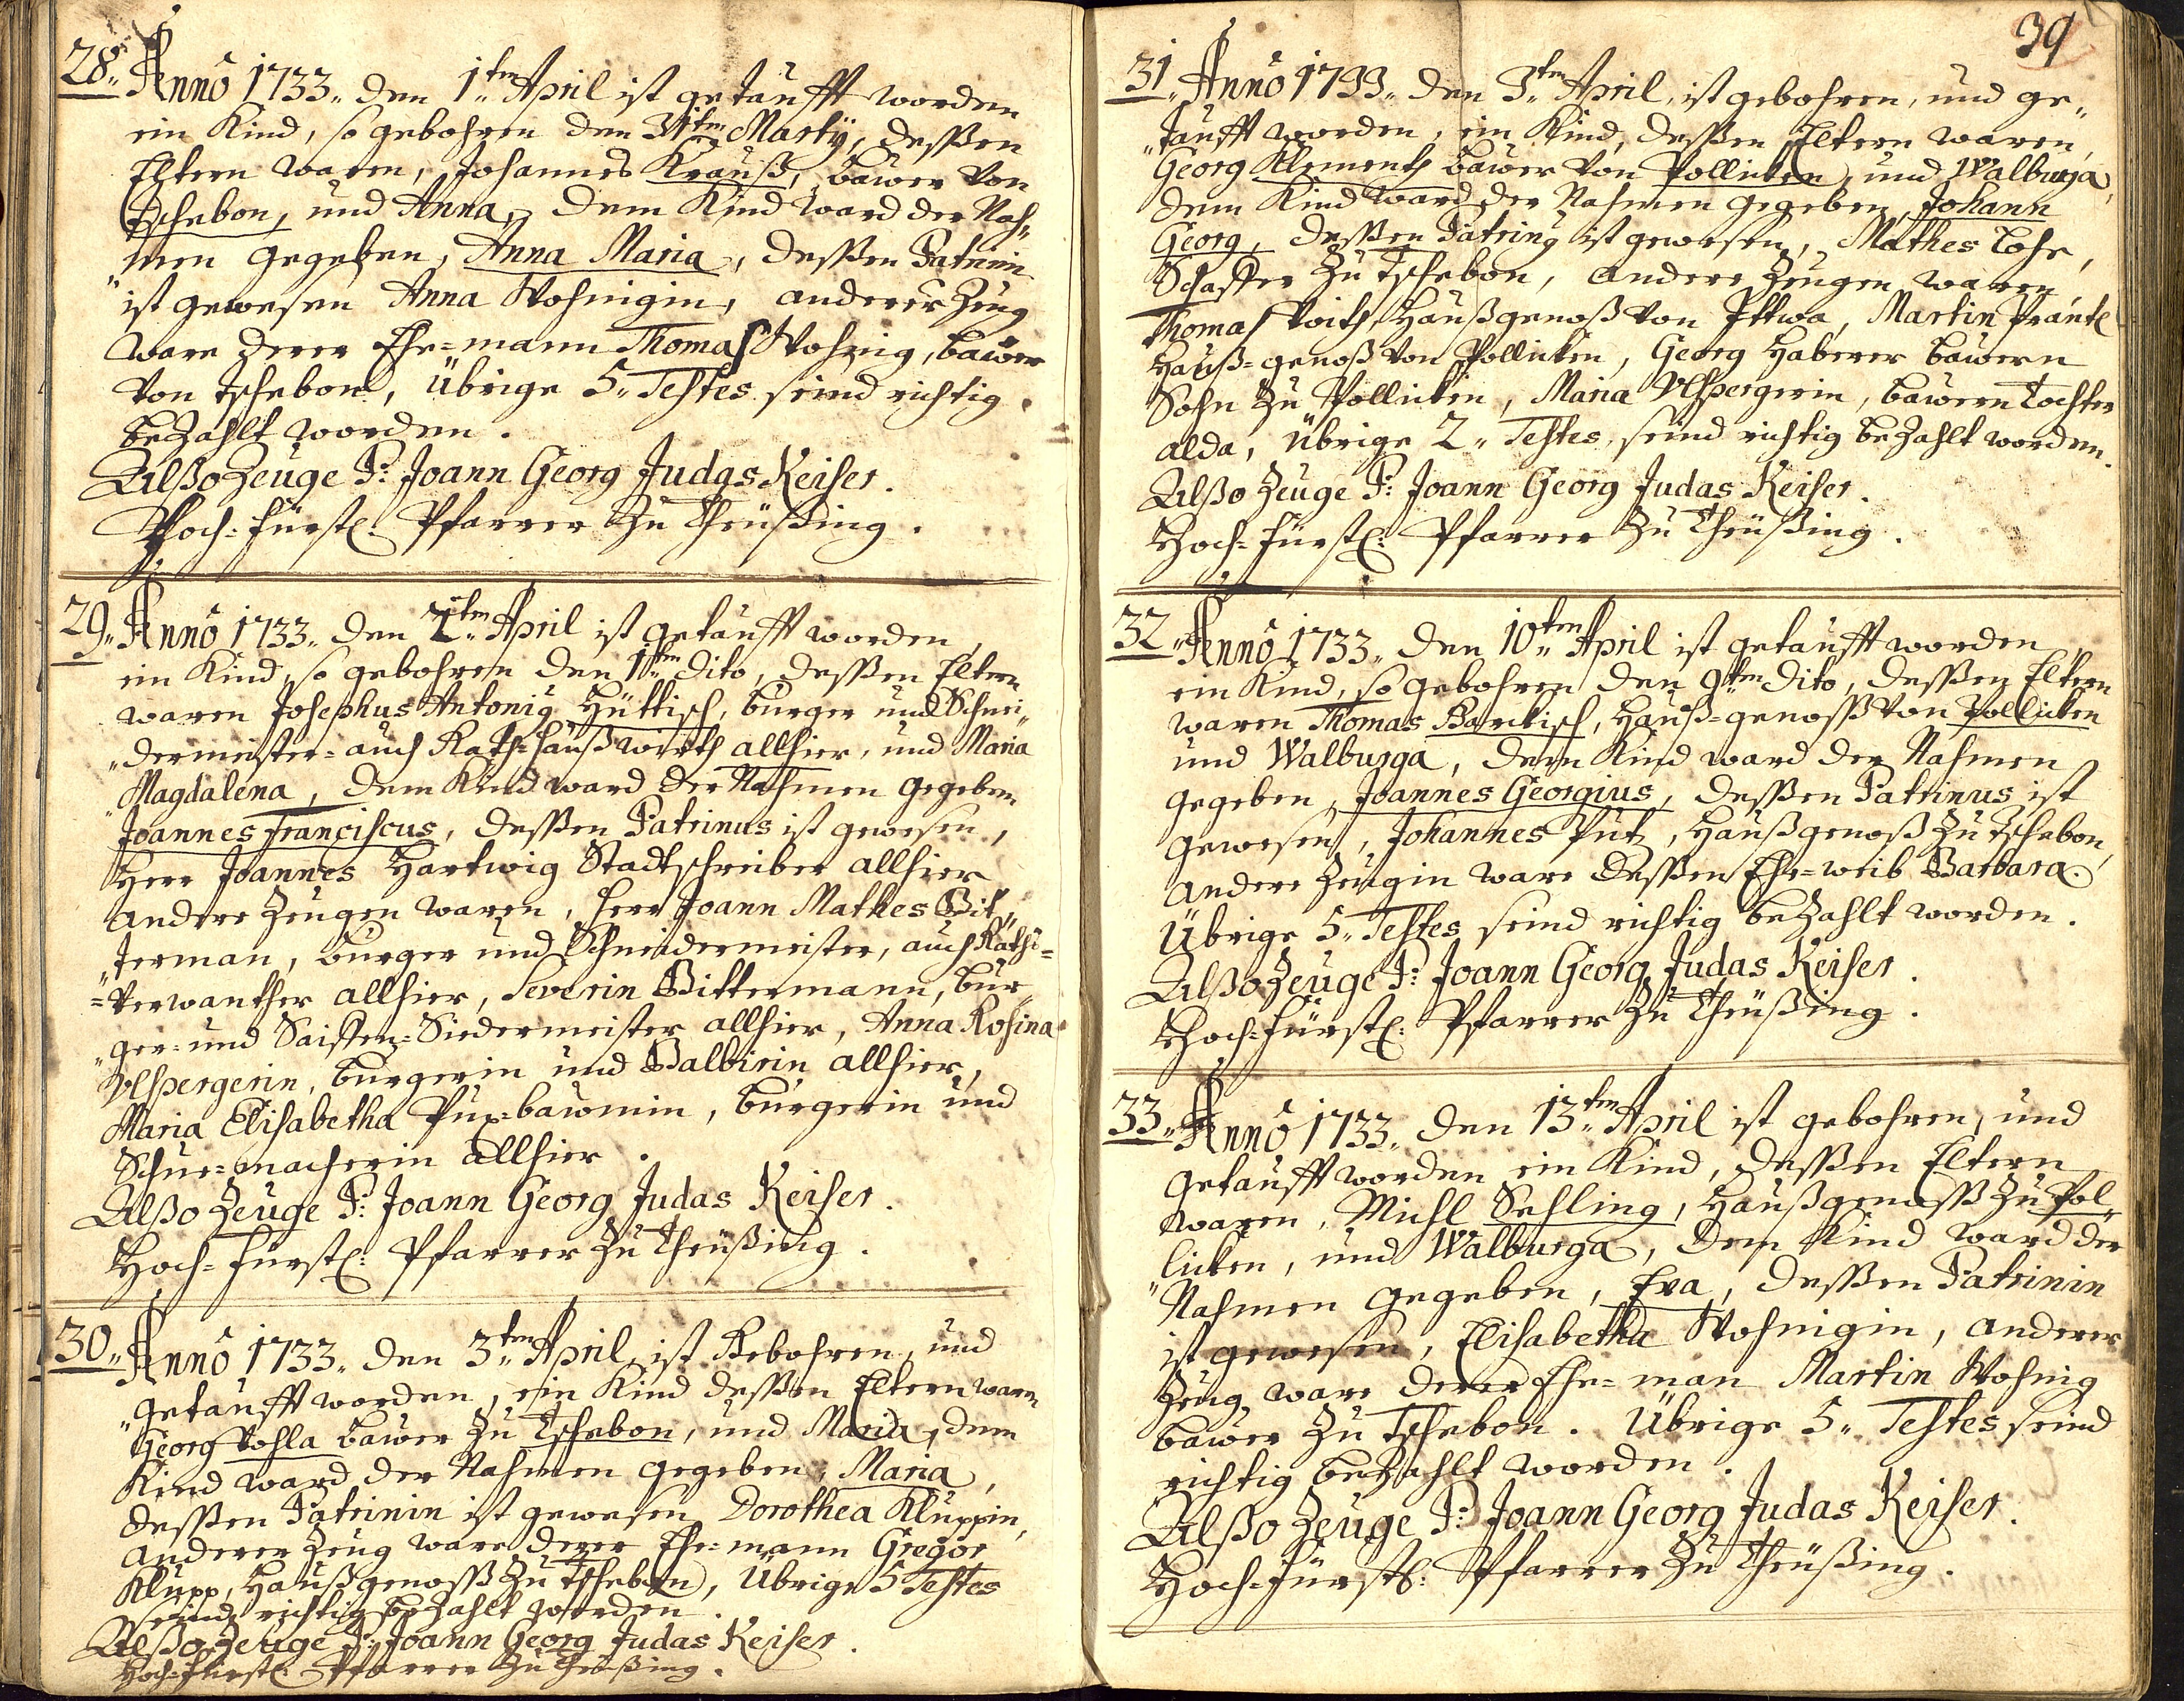 28. Anno 1733. den 1ten April ist getaufft worden
ein Kind, so gebohren den 31ten Martÿ, dessen
Eltern waren, Johannes Krauß, bawer von
Tschebon, und Anna, dem Kind ward der Nah„
„men gegeben, Anna Maria, dessen Patrinin
ist gewesen Anna Wohnigin, anderer Zeug
ware derer Ehe=mann Thomas Wohnig, bawer
von Tschebon, übrige 5. Testes seind richtig
bezahlt worden.
Alßo Zeuge P: Joann Georg Judas Keiser.
Hoch=fürstl: Pfarrer zu Theüßing.
29. Anno 1733. den 2ten April ist getaufft worden,
ein Kind, so gebohren den 1ten dito, dessen Eltern
waren Josephus Antoni9 Hüttisch, burger und Schnei„
„dermeister= auch Rath=haußwirth allhier, und Maria
Magdalena, dem Kind ward der Nahmen gegeben
Joannes Franciscus, dessen Patrinus ist gewesen,
Herr Joannes Hartwig Stadtschreiber allhier
andere Zeugen waren, Herr Joann Mathes Bit„
„terman, burger und Schneidermeister, auch Raths=
=verwanther allhier, Severin Bittermann, bur„
„ger= und Saiffen=Siedermeister allhier, Anna Rosina
Ulspergerin, burgerin und Balbirin allhier,
Maria Elisabetha Pux=bawmin, burgerin und
Schue=macherin allhier.
Alßo Zeuge P: Joann Georg Judas Keiser.
Hoch=fürstl: Pfarrer zu Theüßing.
30. Anno 1733. den 3ten April, ist Gebohren, und
„getaufft worden, ein Kind dessen Eltern waren
Georg Vohla bawer zu Tschebon, und Maria, dem
Kind ward der Nahmen gegeben, Maria,
dessen Patrinin ist gewesen Dorothea Kluppin,
anderer Zeug ware derer Ehe=mann Gregor
Klupp, Haußgenoss zu Tschebon, übrige 5 Testes
seind richtig bezahlt worden.
Alßo Zeuge P: Joann Georg Judas Keiser.
Hoch=fürstl: Pfarrer zu Theüßing.
39
31. Anno 1733. den 3ten April, ist gebohren, und ge„
„taufft worden, ein Kind, dessen Eltern waren,
Georg Klementh bawer von Pollicken, und Walburga,
dem Kind ward der Nahmen gegeben, Johann
Georg, dessen Patrin9 ist gewesen, Mathes Lohr,
Schaffer zu Tschebon, andere Zeugen waren,
Thomas Voith, Haußgenoß von Ittwa, Martin Präntl
Hauß=genoß von Pollicken, Georg Haberer bawern
Sohn zu Pollicken, Maria Ulspergerin, bawern Tochter
alda, übrige 2. Testes, seind richtig bezahlt worden.
Alßo Zeuge P: Joann Georg Judas Keiser.
Hoch=fürstl: Pfarrer zu Theüßing.
32. Anno 1733. den 10ten April ist getaufft worden
ein Kind, so gebohren den 9ten dito, dessen Eltern
waren Thomas Bartisch, Hauß=genoss von Pollicken
und Walburga, dem Kind ward der Nahmen
gegeben, Joannes Georgius, dessen Patrinus ist
gewesen, Johannes Putz, Haußgenoß zu Tschebon,
andere Zeugin ware dessen Ehe=weib Barbara.
Übrige 5. Testes seind richtig bezahlt worden.
Alßo Zeuge P: Joann Georg Judas Keiser.
Hoch=fürstl: Pfarrer zu Theüßing.
33. Anno 1733. den 13ten April ist gebohren, und
getaufft worden ein Kind, dessen Eltern
waren, Michl Sehling, Haußgenoss zu Pol„
„licken, und Walburga, dem Kind ward der
Nahmen gegeben, Eva, dessen Patrinin
ist gewesen, Elisabetha Wohnigin, anderer
Zeug ware derer Ehe=man Martin Wohnig
bawer zu Tschebon. Übrige 5. Testes seind
richtig bezahlt worden.
Alßo Zeuge P: Joann Georg Judas Keiser.
Hoch=fürstl: Pfarrer zu Theüßing.